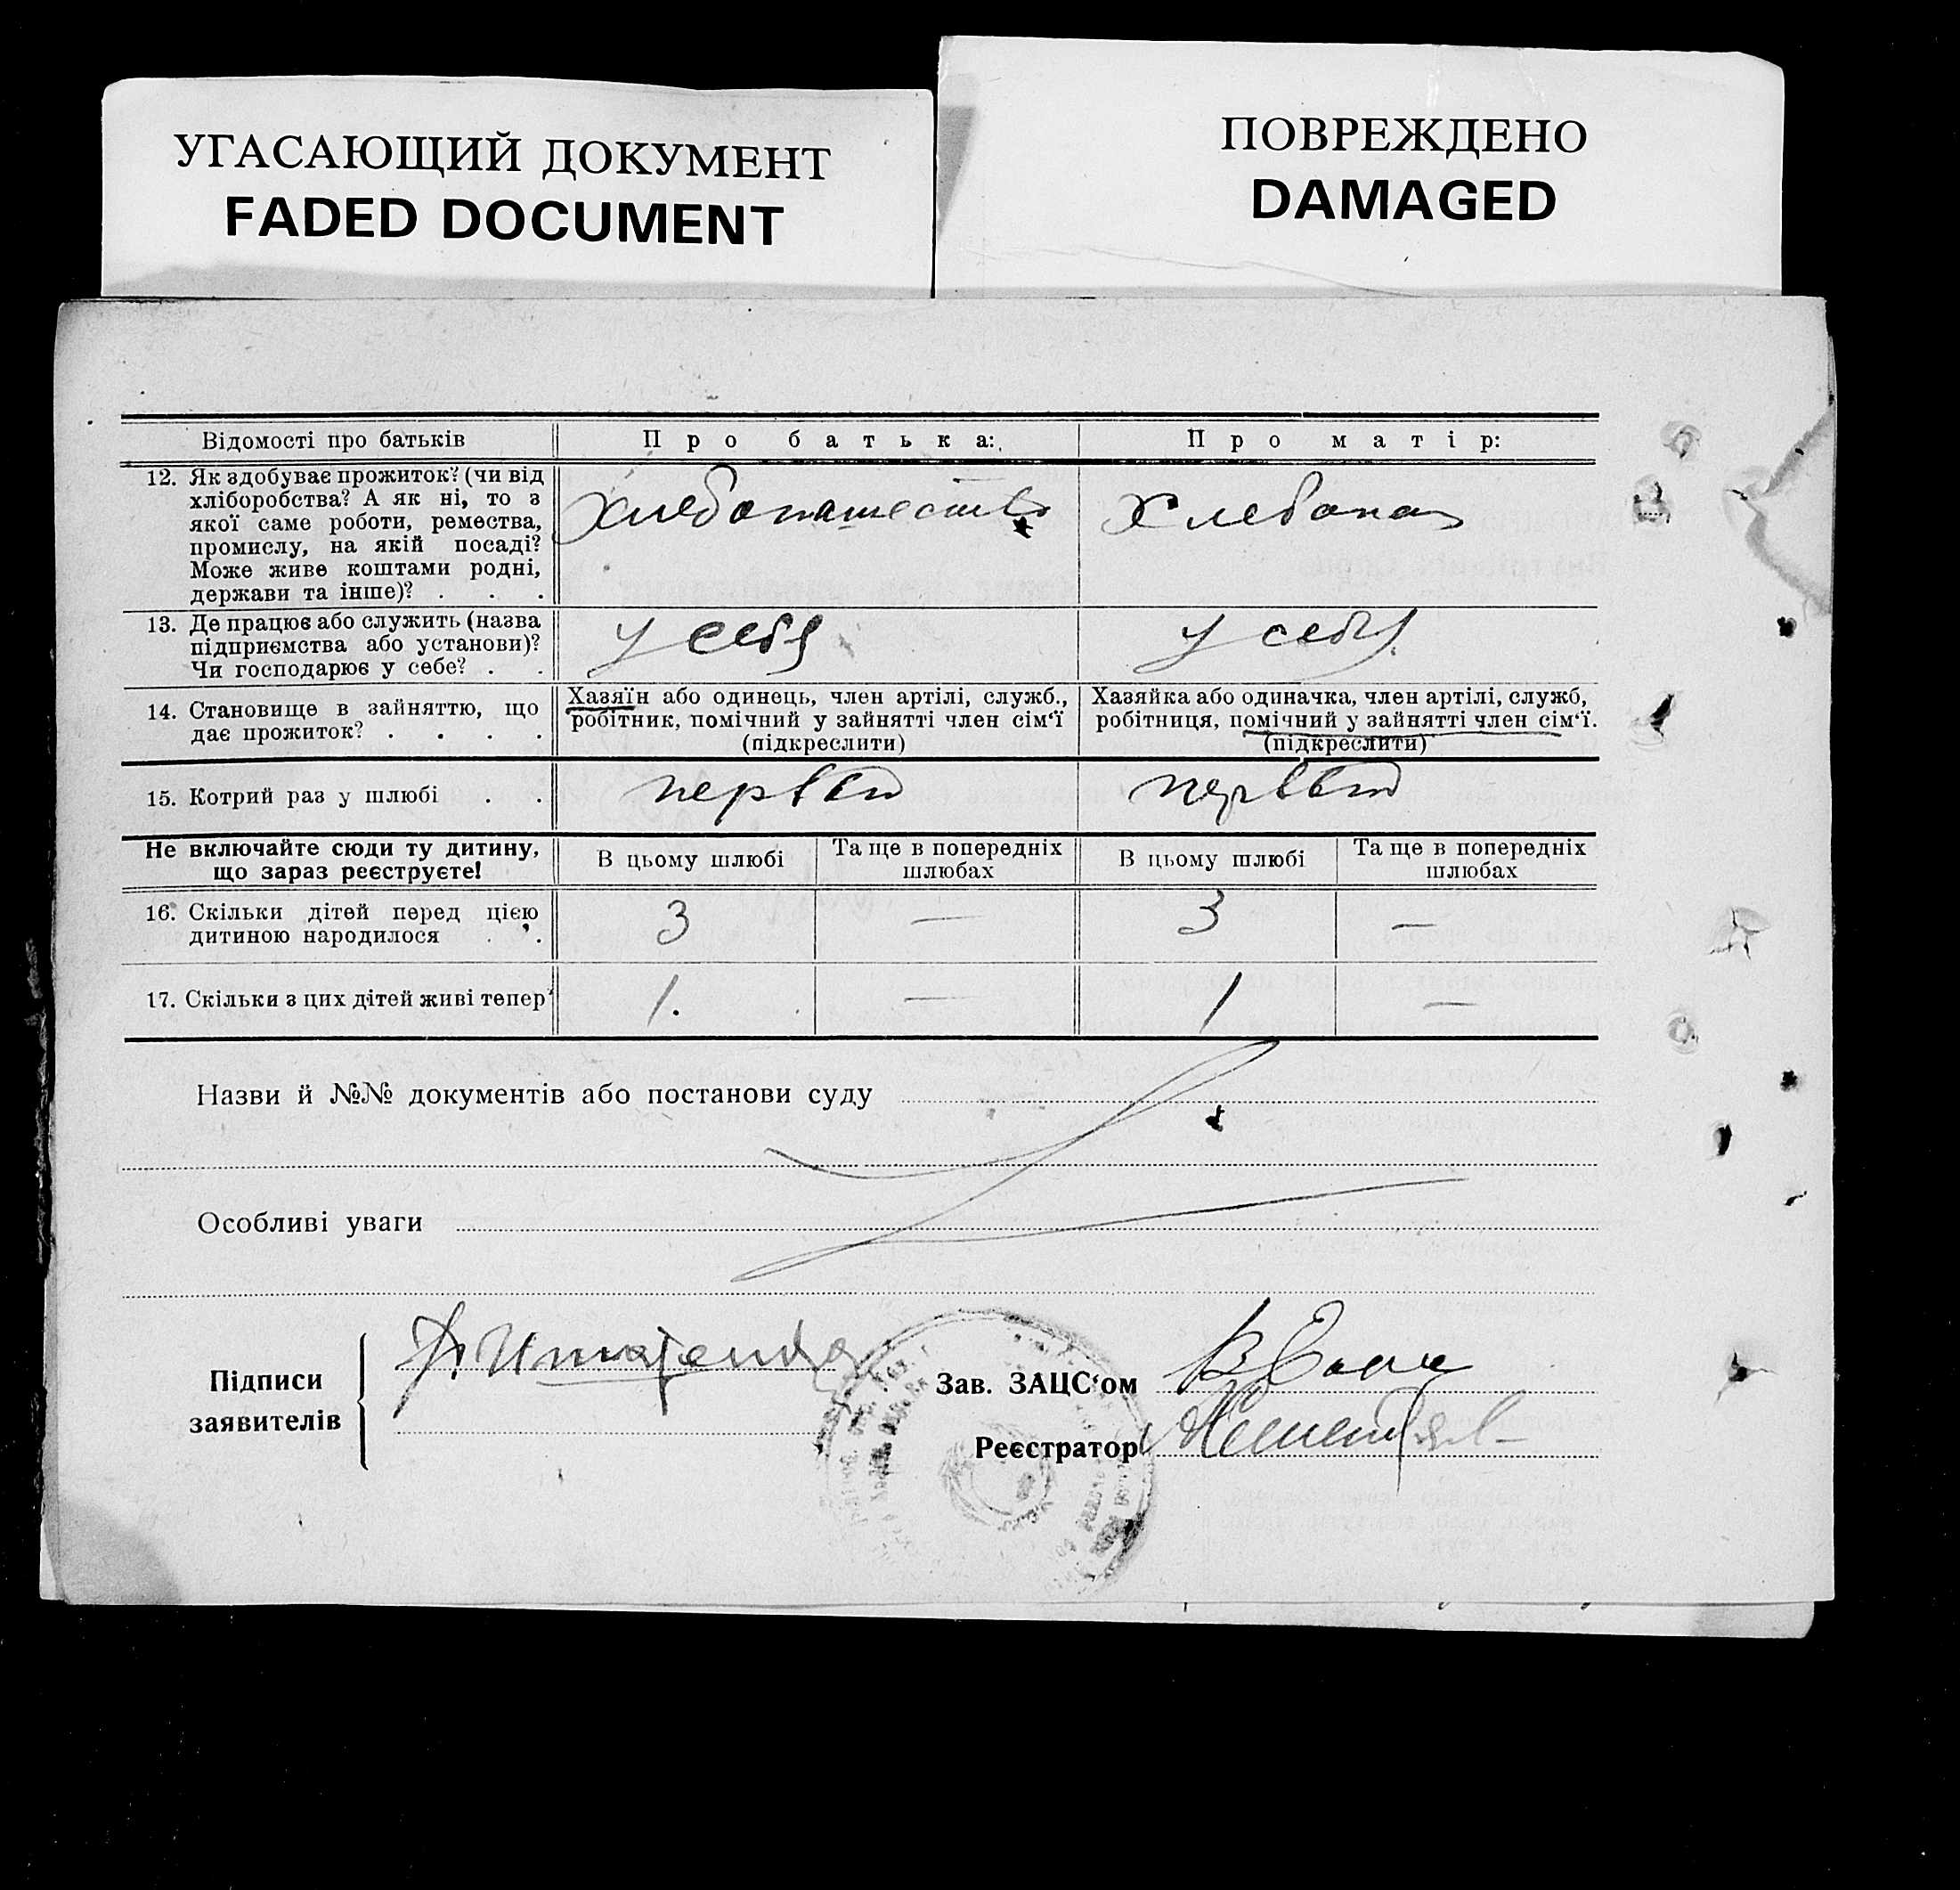 УГАСАЮЩИЙ ДОКУМЕНТ
FADED DOCUMENT
ПОВРЕЖДЕНО
DAMAGED
Відомості про батьків Про батька: Про матір:
12. Як здобуває прожиток? (чи від
хліборобства? А як ні, то з
якої саме роботи, ремества,
промислу, на якій посаді?
Може живе коштами родні,
держави та інше)? . . .
Хлебопашество Хлебопаш
13. Де працює або служить (назва
підприємства або установи)?
Чи господарює у себе? . .
у себя у себя
14. Становище в зайняттю, що
дає прожиток? . . . .
Хазяїн або одинець, член артілі, служб.,
робітник, помічний у зайнятті член сім‘ї
(підкреслити)
Хазяйка або одиначка, член артілі, служб,
робітниця, помічний у зайнятті член сім‘ї.
(підкреслити)
15. Котрий раз у шлюбі . . первый первый
Не включайте сюди ту дитину,
що зараз реєструєте!
В цьому шлюбі Та ще в попередніх
шлюбах
В цьому шлюбі Та ще в попередніх
шлюбах
16. Скільки дітей перед цією
дитиною народилося . .
3 — 3 —
17. Скільки з цих дітей живі тепер 1. — 1 —
Назви й №№ документів або постанови суду
Особливі уваги
Підписи
заявителів
Зав. ЗАЦС‘ом
Реєстратор